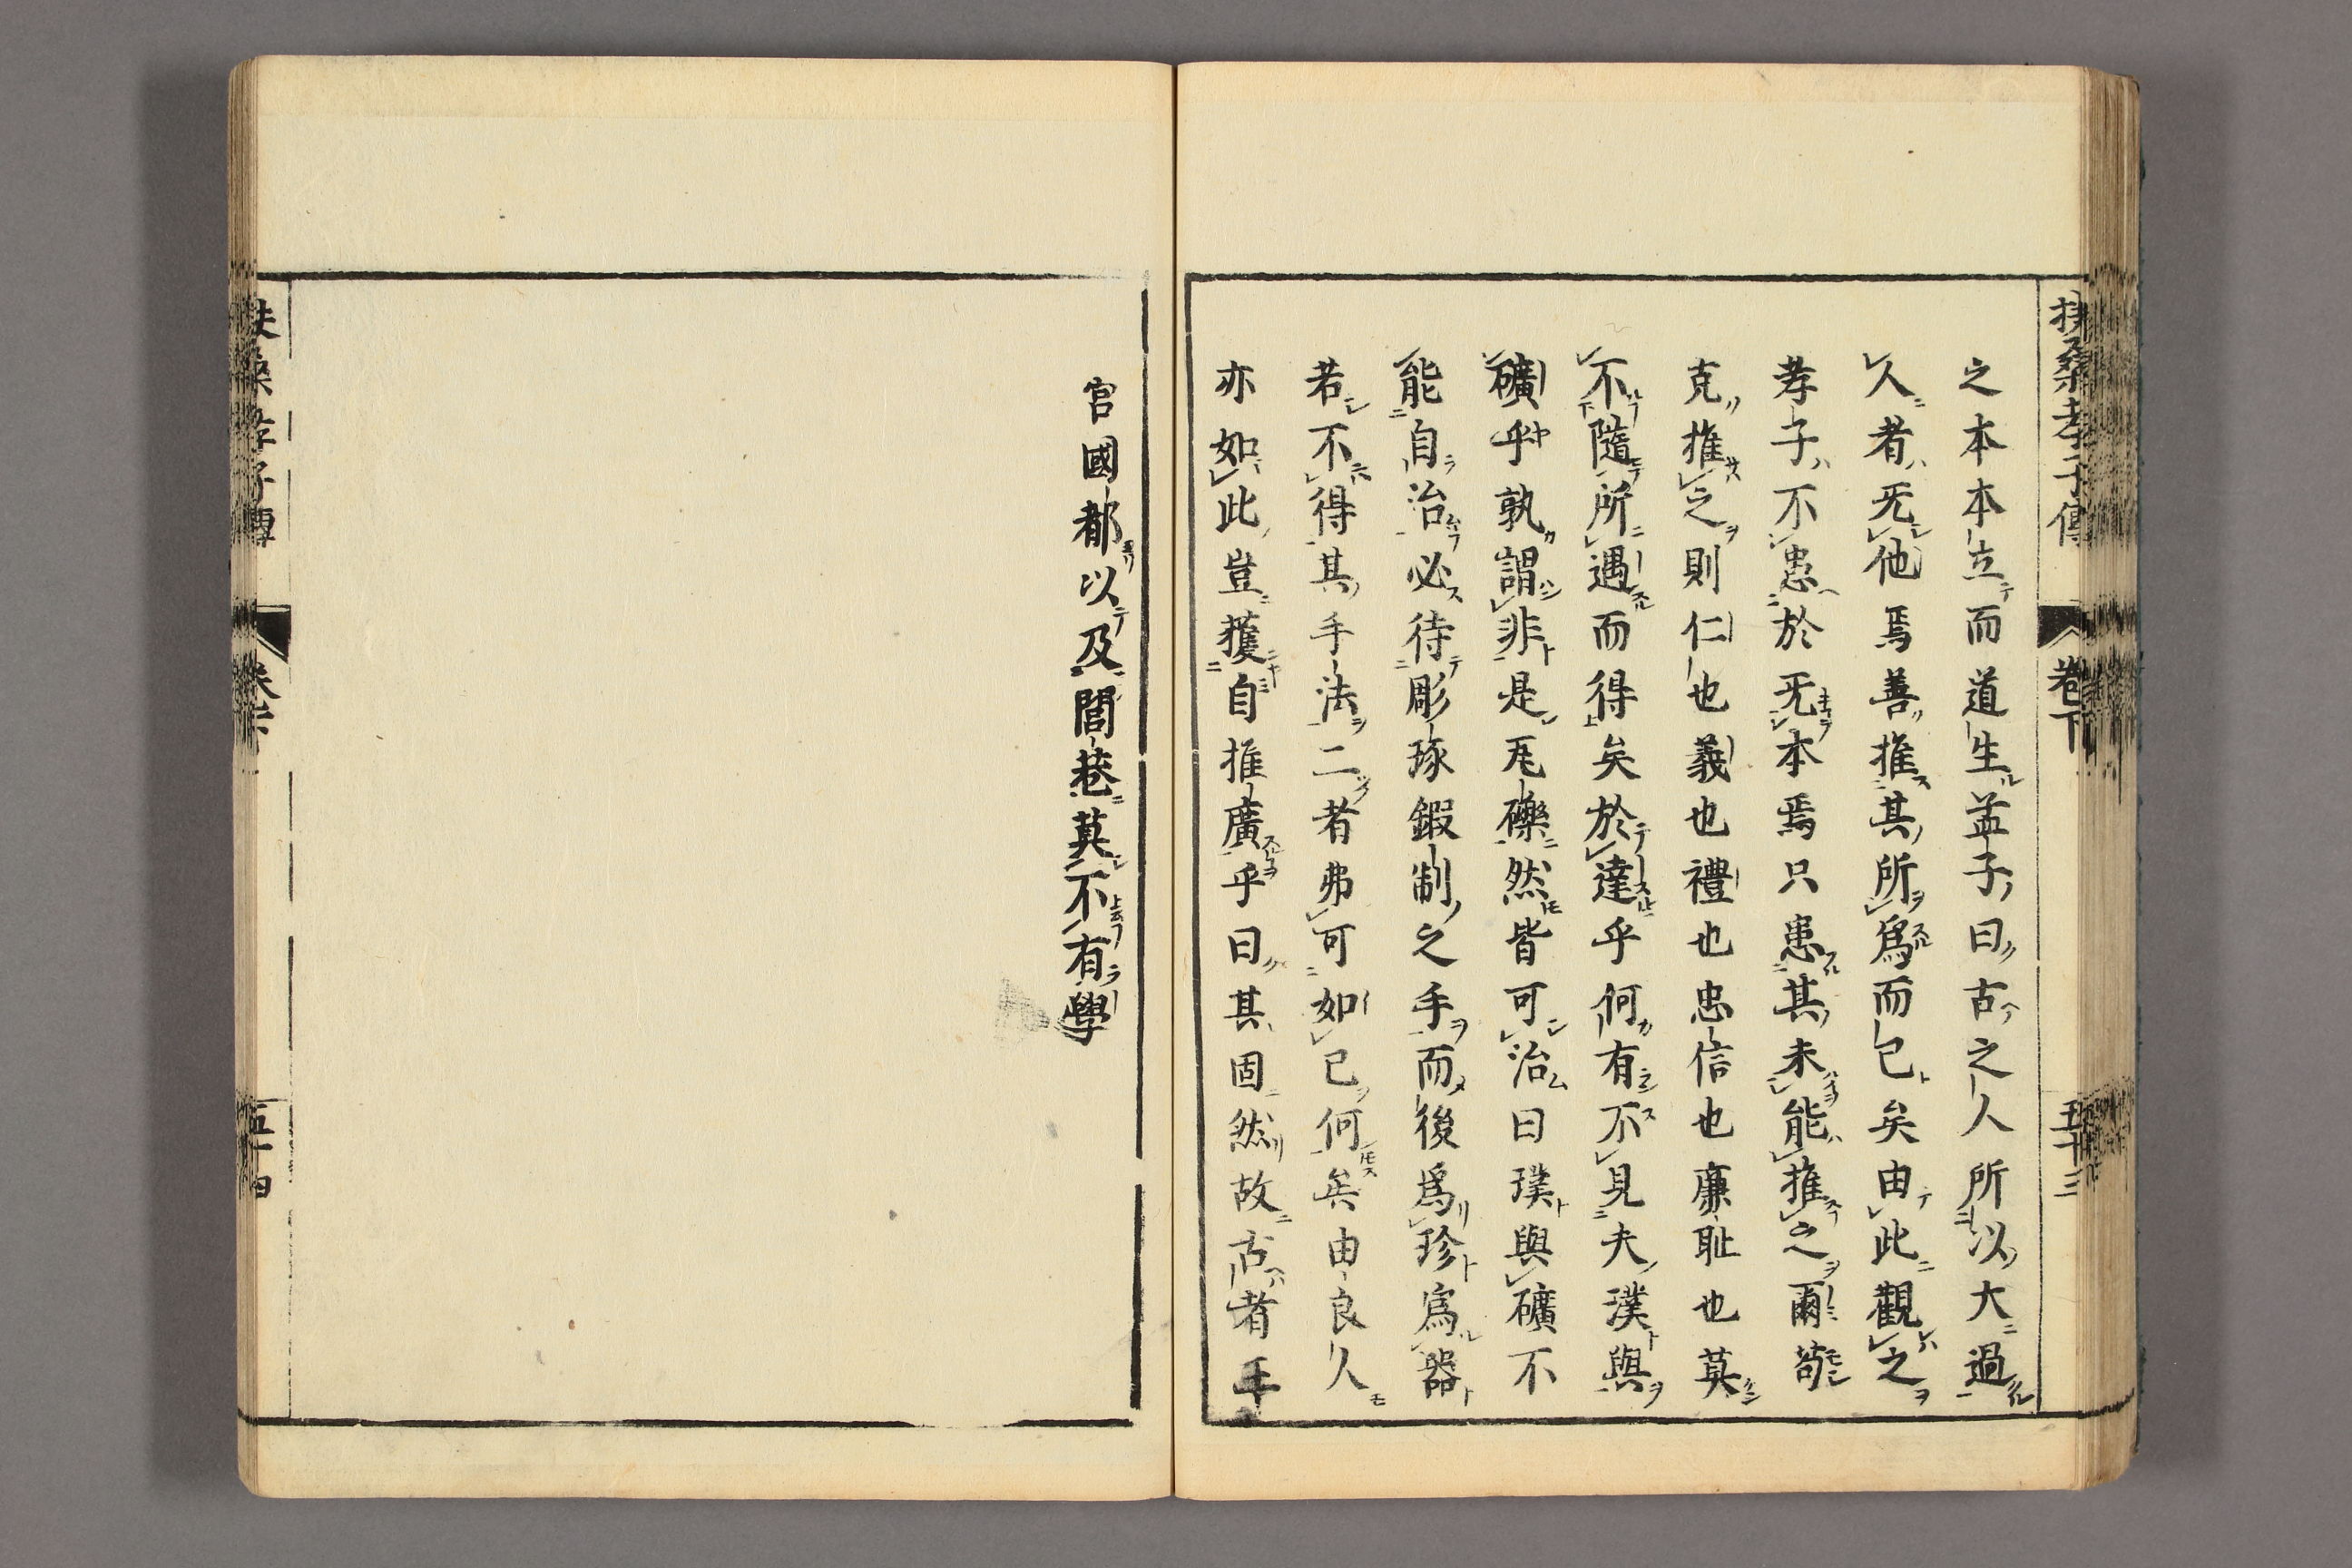 扶桑孝子傳 卷下 五十三
之本本立而道生孟子曰古之人所以大過
人者无他焉善推其所爲而已矣由此觀之
孝子不患於无本焉只患其未能推之爾苟
克推之則仁也義也禮也忠信也廉耻也莫
不隨所遇而得矣於達乎何有不見夫璞與
礦乎孰謂非是瓦礫然皆可治曰璞與礦不
能自治必待彫琢鍜制之手而後爲珍爲器
若不得其手法二者弗可如已何矣由良人
亦如此豈獲自推廣乎曰其固然故古者王
宮國都以及閭巷莫不有學
扶桑孝子傳 五十四